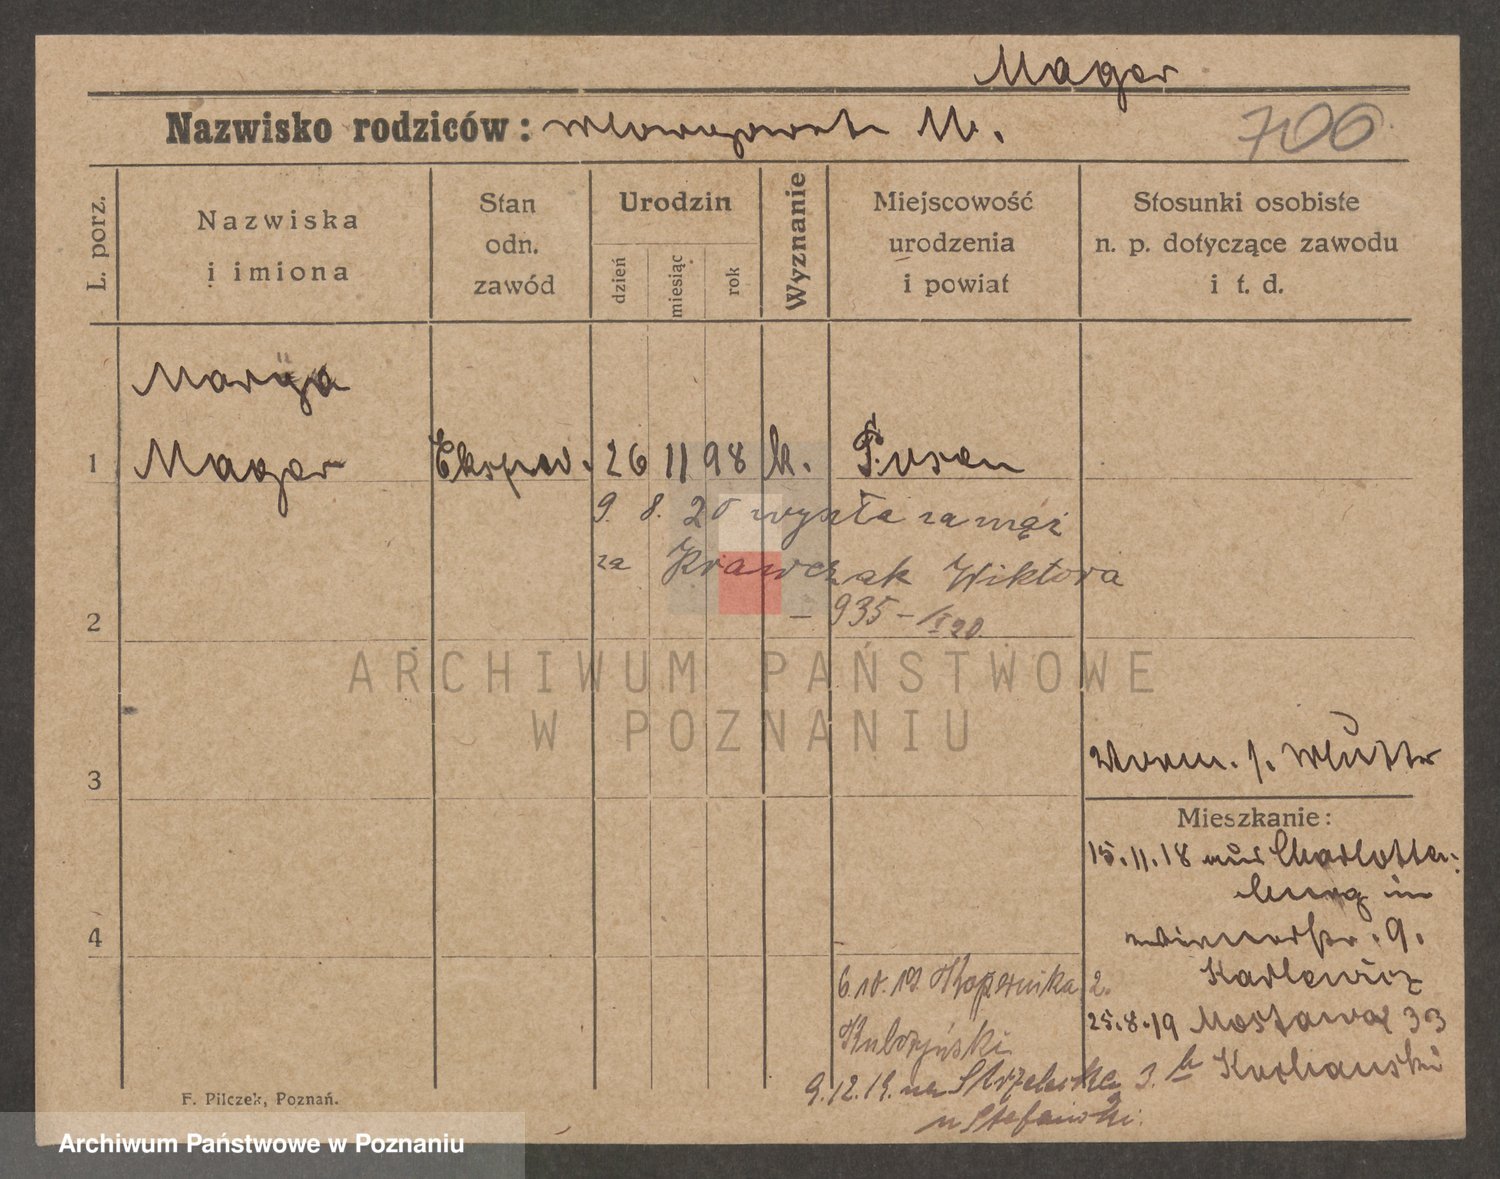 Mager
Nazwisko rodziców: M.
706
L. porz.
Nazwiska
i imiona
Stan
odn.
zawód
Urodzin
dzień
miesiąc
rok
Wyznanie
Miejscowość
urodzenia
i powiat
Stosunki osobiste
n. p. dotyczące zawodu
i t. d.
Marya
1 Mager Eksped. 26 11 98 k. Posen
9. 8. 20 wyszła zamąż
za Krawczak Wiktora
2
– 935 – /I 20
ARCHIWUM PAŃSTWOWE
W POZNANIU
3
Mieszkanie:
15.11.18 aus Charlotten-
burg in
4
9.
Karlewicz
6.10.19 Kopernika 2.
25.8.19 Mostowa 33
9.12.19. na Strzelecka 3.
u Stefański
F. Pilczek, Poznań.
Archiwum Państwowe w Poznaniu